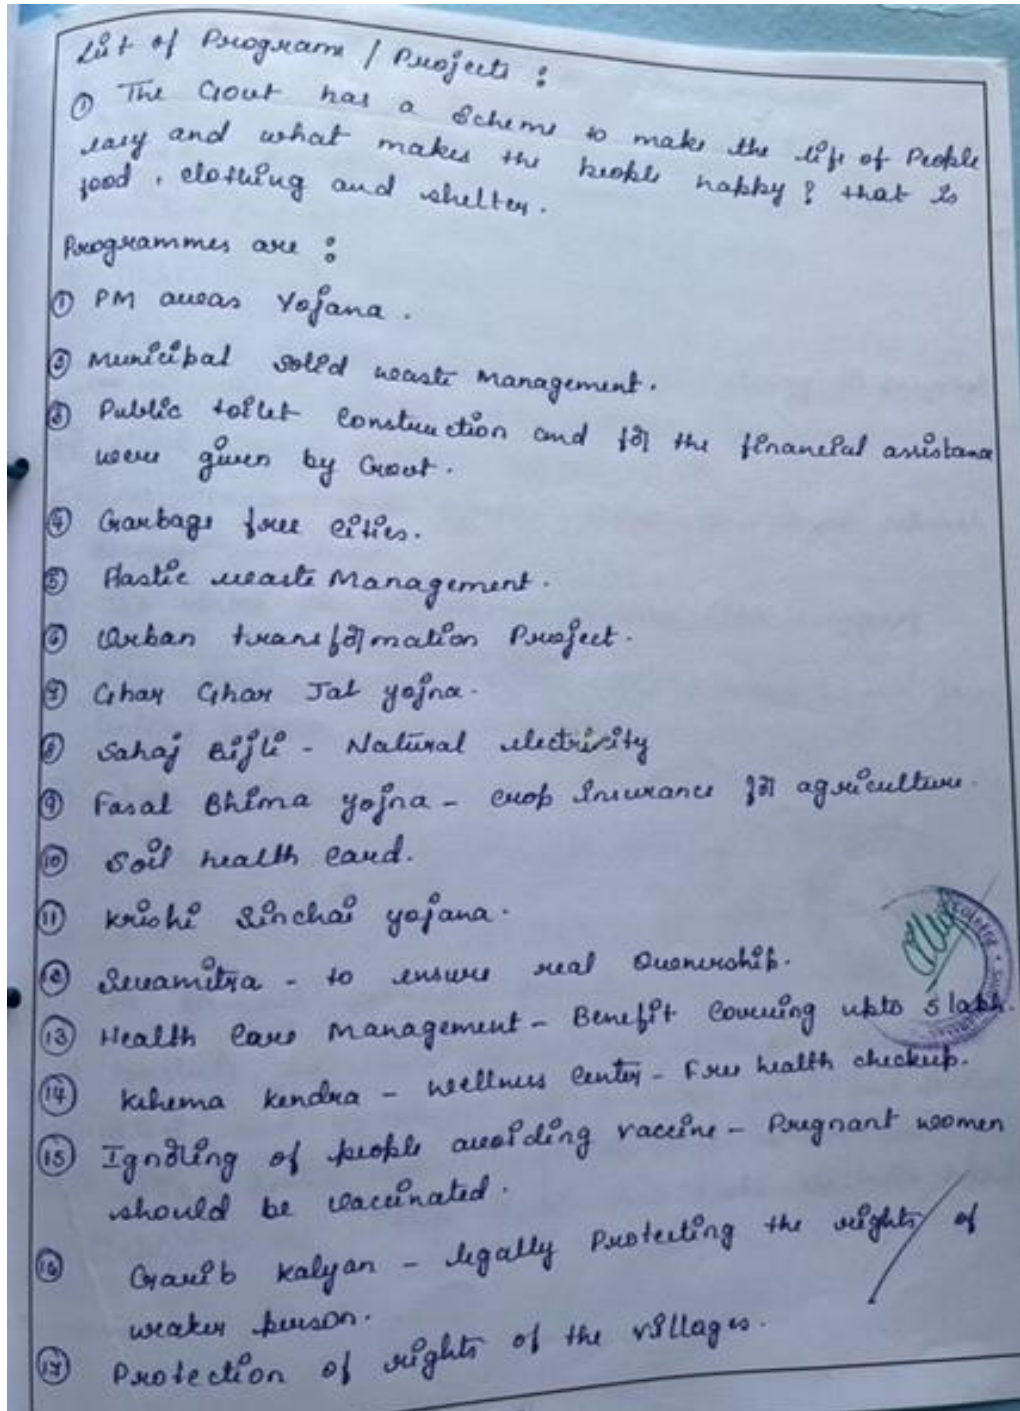 List of Programs / Projects :
① The Govt has a scheme to make the life of People
easy and what makes the people happy? that is
food, clothing and shelter.
Programmes are :
① PM awas Yojana.
② Municipal solid waste Management.
③ Public toilet Construction and for the financial assistance
were given by Govt.
④ Garbage free cities.
⑤ Plastic waste Management.
⑥ Urban transformation Project.
⑦ Ghar Ghar Jal yojna.
⑧ Sahaj Bijli - Natural electricity
⑨ Fasal Bhima yojna - crop Insurance for agriculture.
⑩ Soil health card.
⑪ Krishi Sinchai yojana.
⑫ Swamitra - to ensure real Ownership.
⑬ Health Care Management - Benefit Covering upto 5 lakh.
⑭ Kshema Kendra - wellness Center - Free health checkup.
⑮ Ignoring of people avoiding vaccine - Pregnant women
should be vaccinated.
⑯ Garib Kalyan - legally Protecting the rights of
weaker person.
⑰ Protection of rights of the villages.